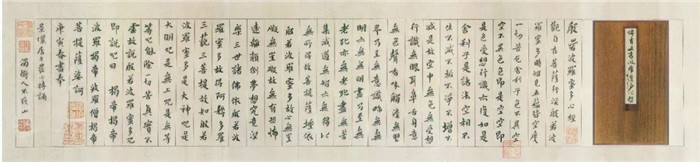 般若波羅蜜多心經
觀自在菩薩行深般若波
羅蜜多時照見五蘊皆空度
一切苦厄舍利子色不異空
空不異色色即是空空即
是色受想行識亦復如是
舍利子是諸法空相不
生不滅不垢不淨不增不
減是故空中無色無受想
行識無眼耳鼻舌身意
無色聲香味觸法無眼
界乃至無意識界無無
明亦無無明盡乃至無
老死亦無老死盡無苦
集滅道無智亦無得以
無所得故菩提薩埵依
般若波羅蜜多故心無罣
礙無罣礙故無有恐怖
遠離顛倒夢想究竟涅
槃三世諸佛依般若波
羅蜜多故得阿耨多羅
三藐三菩提故知般若
波羅蜜多是大神咒是
大明咒是無上咒是無等
等咒能除一切苦真實不
虛故說般若波羅蜜多咒
即說咒曰 揭帝揭帝
波羅揭帝 波羅僧揭帝
菩提薩婆訶
庚寅春書奉
居士 持誦